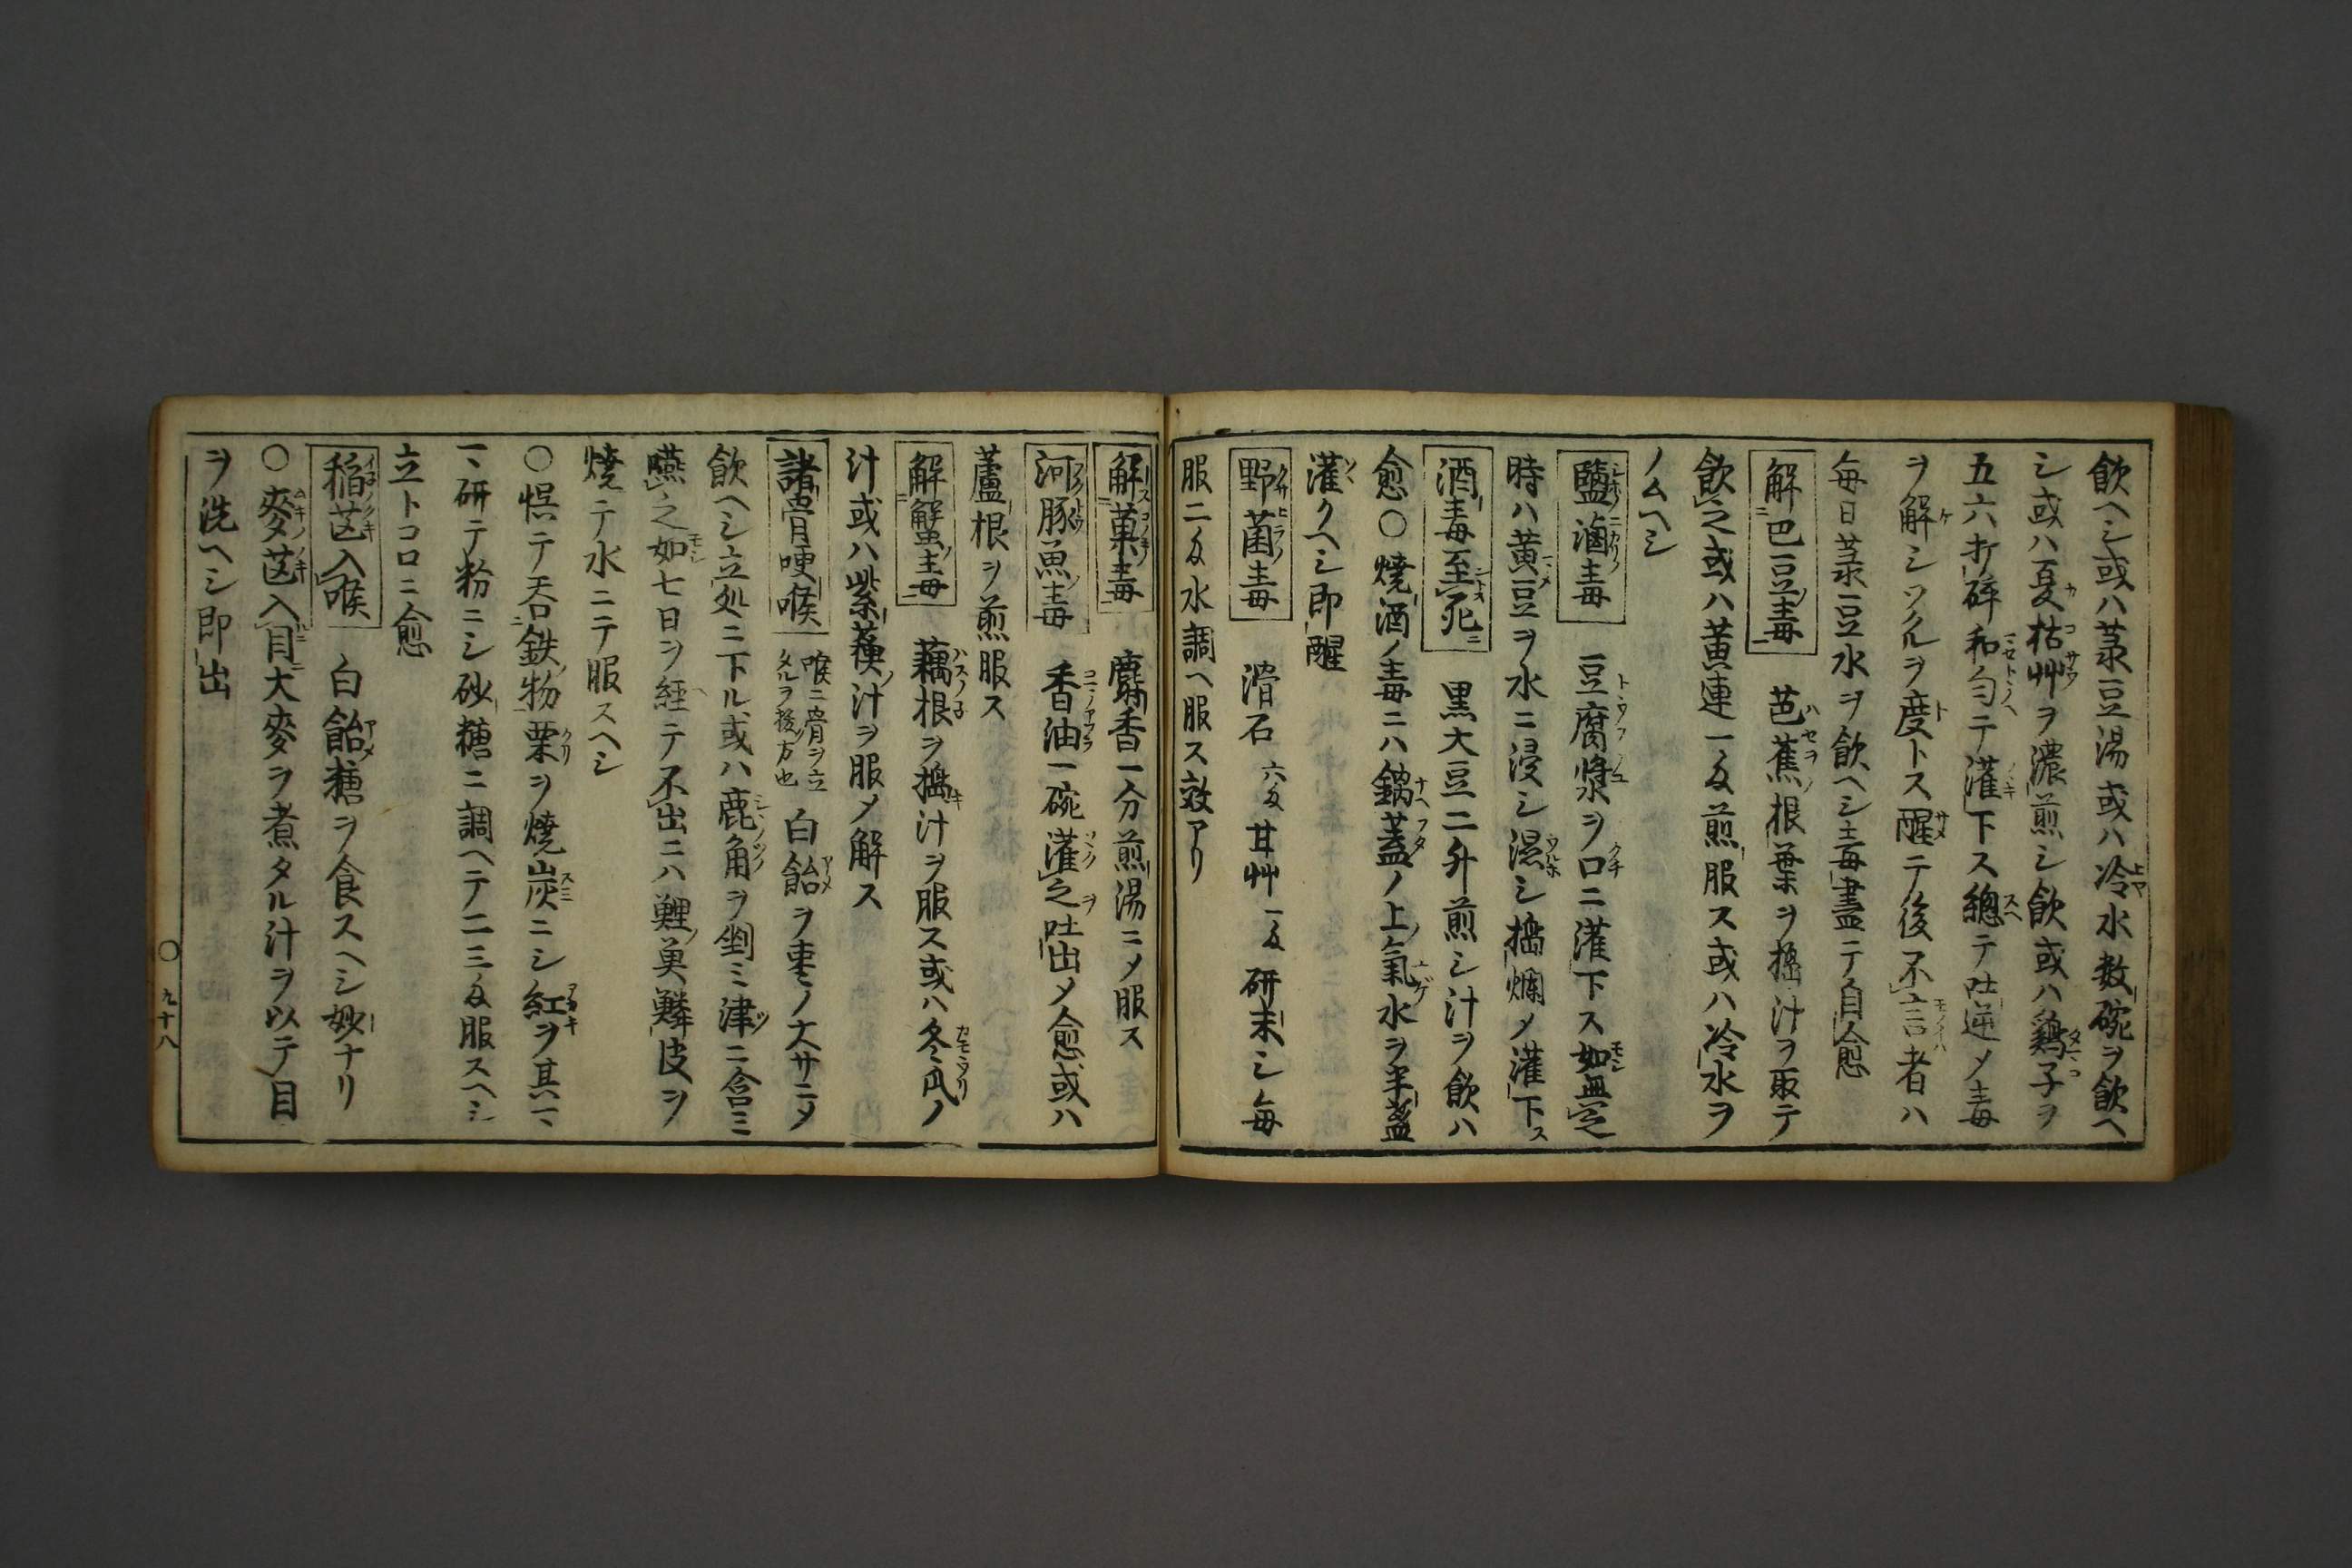 飲ヘシ或ハ菉豆湯或ハ冷水数碗ヲ飲ヘ
シ或ハ夏枯艸ヲ濃煎シ飲或ハ鷄子ヲ
五六打碎和匀テ灌下ス總テ吐逆〆毒
ヲ解シツクルヲ度トス醒テ後不言者ハ
毎日菉豆水ヲ飲ヘシ毒盡テ自愈
解巴豆毒 芭蕉根葉ヲ搗汁ヲ取テ
飲之或ハ黄連一匁煎服ス或ハ冷水ヲ
ノムヘシ
鹽滷毒 豆腐漿ヲ口ニ灌下ス如無之
時ハ黄豆ヲ水ニ浸シ濕シ搗爛〆灌下ス
酒毒至死 黒大豆二升煎シ汁ヲ飲ハ
愈〇燒酒ノ毒ニハ鍋蓋ノ上氣水ヲ半盞
灌クヘシ即醒
野菌毒 滑石六匁甘艸一匁研末シ毎
服二匁水調ヘ服ス效アリ
解菓毒 麝香一分煎湯ニ〆服ス
河豚魚毒 香油一碗灌之吐出〆愈或ハ
蘆根ヲ煎服ス
解蟹毒 藕根ヲ搗汁ヲ服ス或ハ冬瓜ノ
汁或ハ紫蘓汁ヲ服〆解ス
諸骨哽喉 喉ニ骨ヲ立タルヲ抜ク方也 白飴ヲ棗ノ大サニ〆
飲ヘシ立処ニ下ル或ハ鹿角ヲ剉ミ津ニ含ミ
嚥之如七日ヲ経テ不出ニハ鯉魚鱗皮ヲ
燒テ水ニテ服スヘシ
〇悞テ呑鉄物栗ヲ燒炭ニシ紅ヲ其一
一研テ粉ニシ砂糖ニ調ヘテ二三匁服スヘシ
立トコロニ愈
稲芒入喉 白飴糖ヲ食スヘシ妙ナリ
〇麥芒入目大麥ヲ煮タル汁ヲ以テ目
ヲ洗ヘシ即出
〇九十八